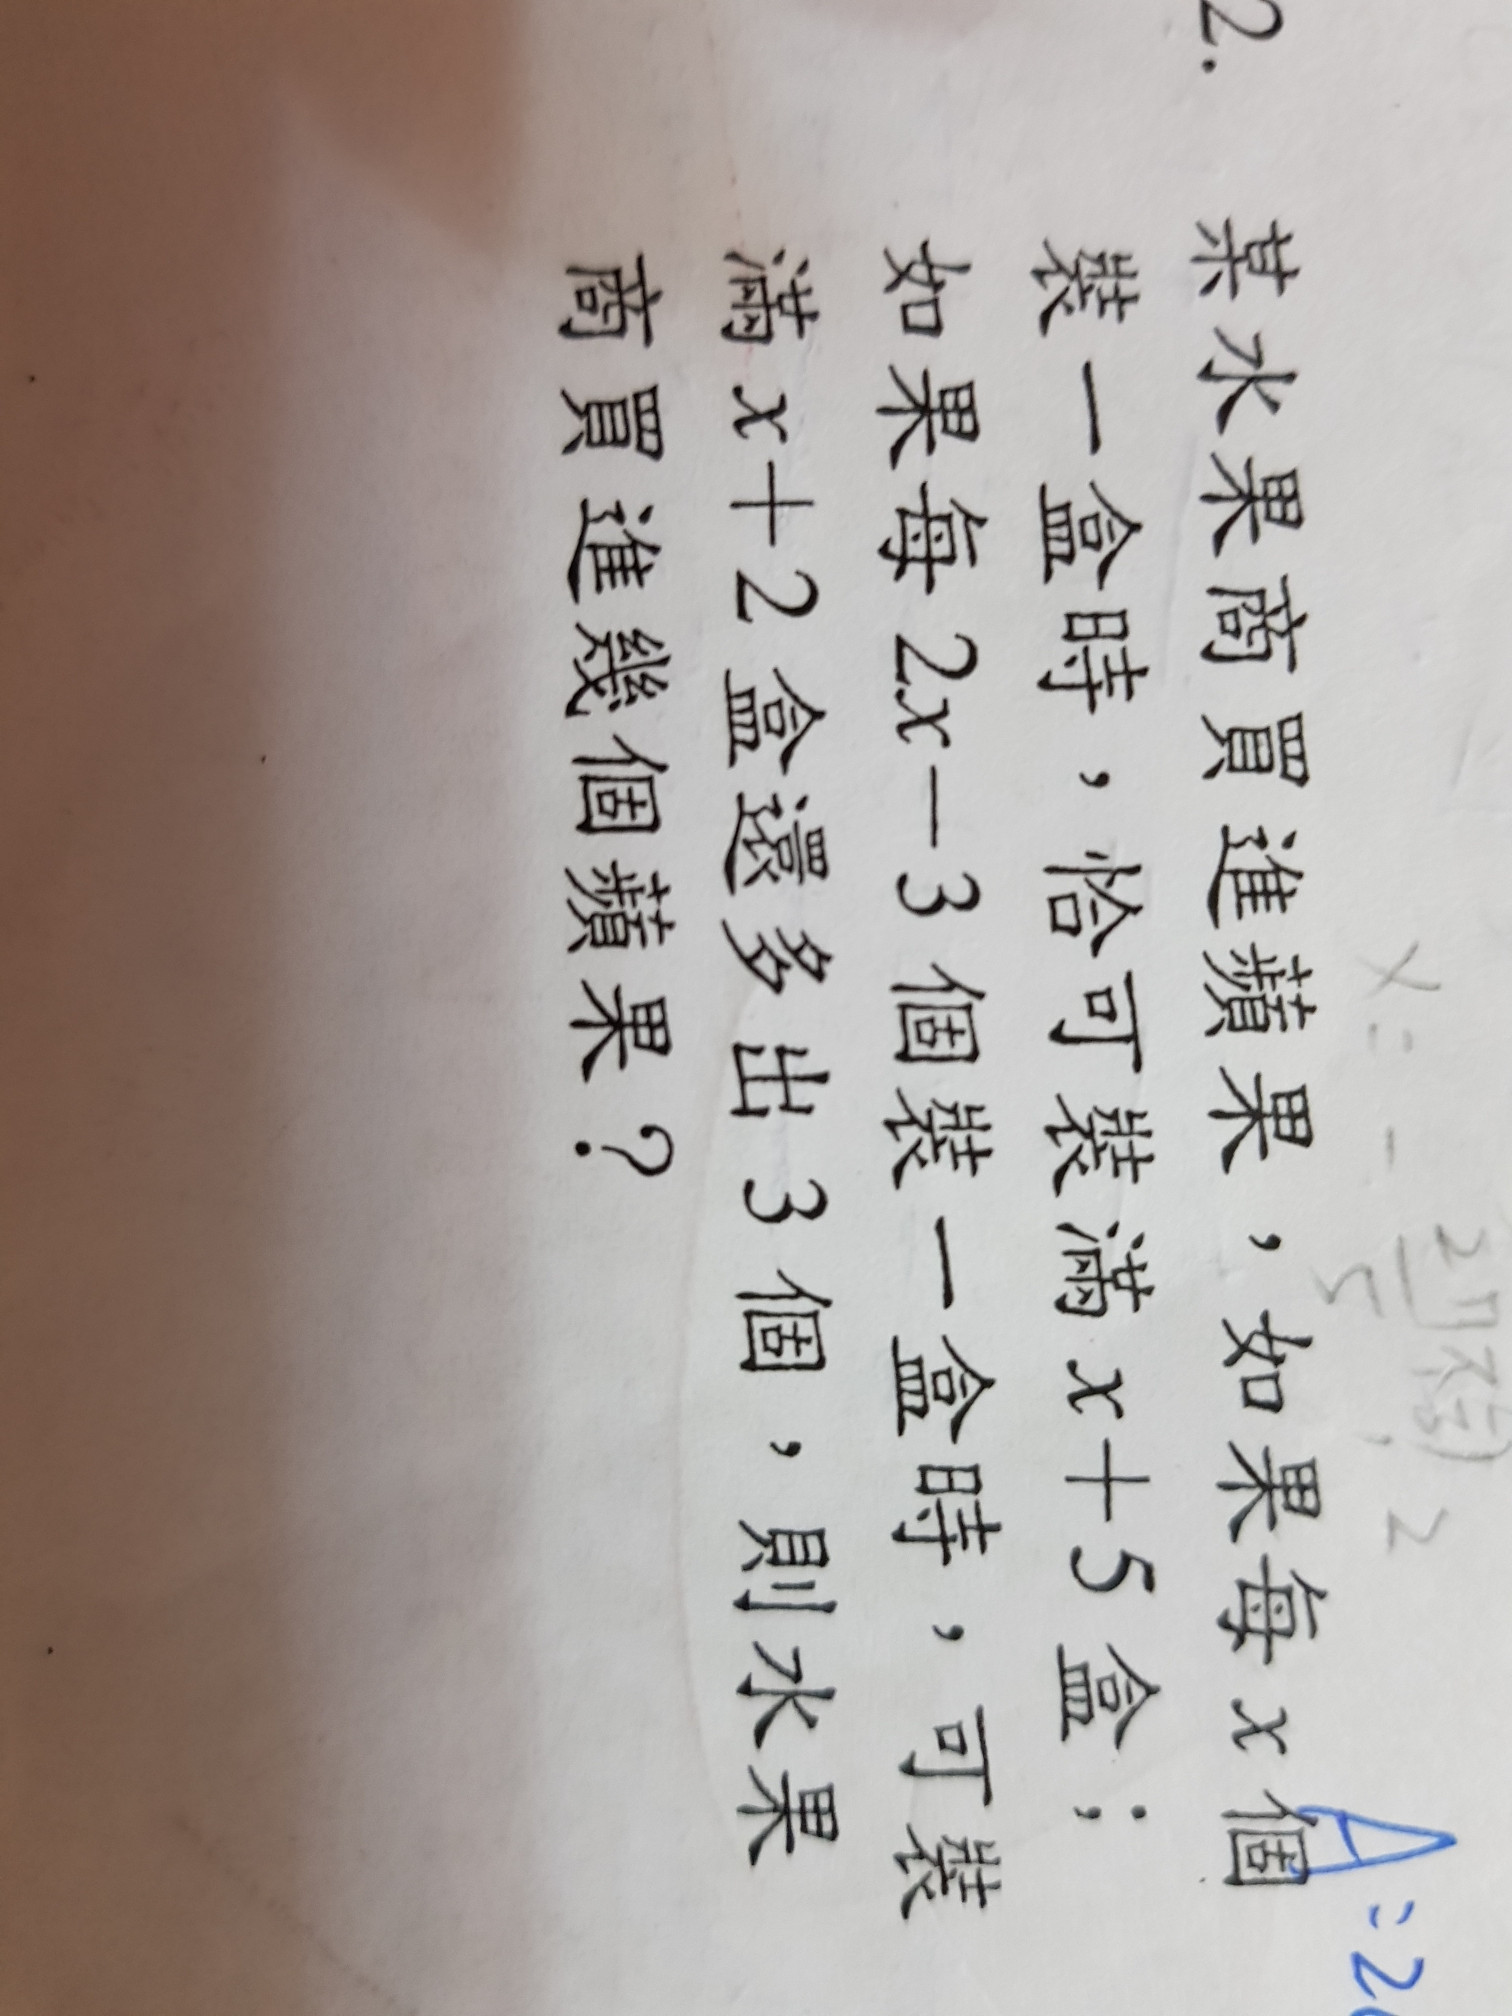 2.
某水果商買進蘋果，如果每 x 個
裝一盒時，恰可裝滿 x＋5 盒；
如果每 2x－3 個裝一盒時，可裝
滿 x＋2 盒還多出 3 個，則水果
商買進幾個蘋果？
x = -
A:2